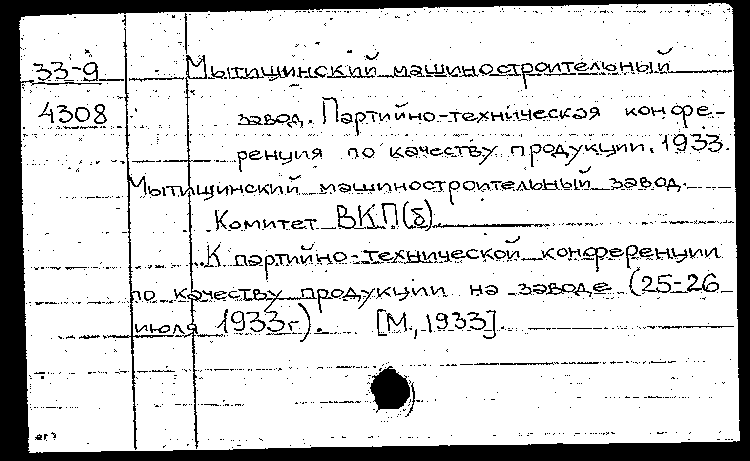 33-9 Мытищинский машиностроительный
4308 завод. Партийно-техническая конфе-
ренция по качеству продукции. 1933.
Мытищинский машиностроительный завод.
Комитет ВКП(б)
К партийно-технической конференции
по качеству продукции на заводе (25-26
июля 1933г.). [М., 1933].